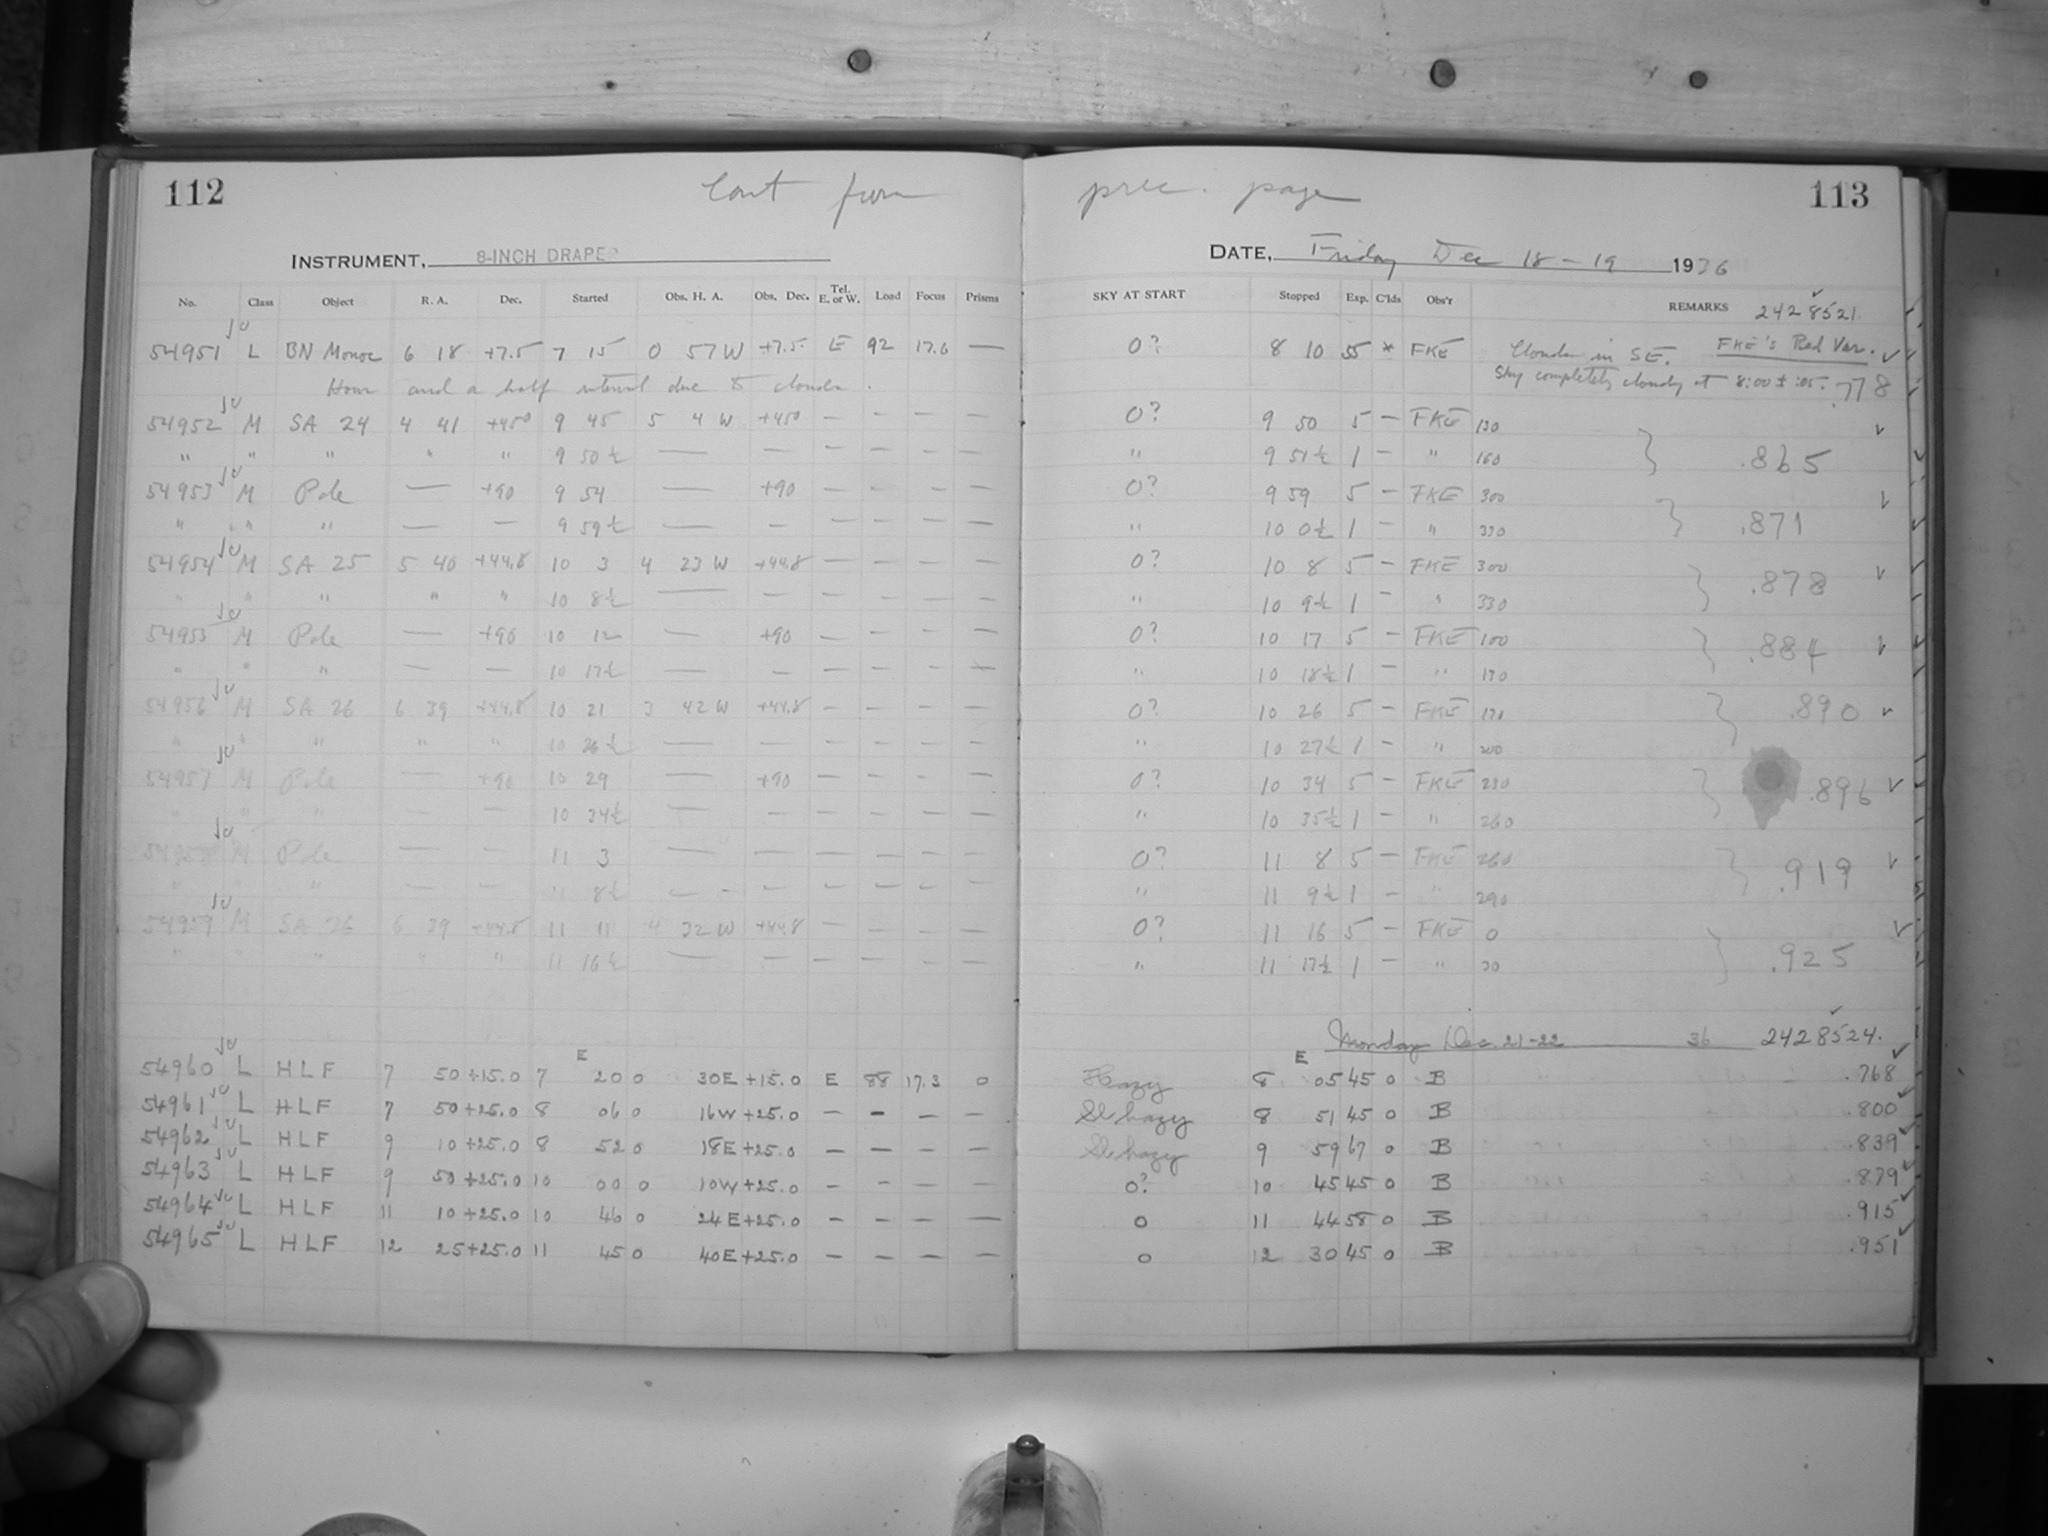 112 Cont from prec. page 113
INSTRUMENT, 8-INCH DRAPER DATE, Friday Dec 18-19 1936
No. Class Object R. A. Dec. Started Obs. H. A. Obs. Dec. Tel. E. or W. Load Focus Prisms SKY AT START Stopped Exp. C'lds Obs'r REMARKS 2428521.
54951 L BN Monoc 6 18 +7.5 7 15 0 57W +7.5 E 92 17.6 — 0? 8 10 55 * FKE Clouds in SE. FKE's Red Var.
Hour and a half interval due to clouds. Sky completely cloudy at 8:00 ± :05. .778
54952 M SA 24 4 41 +45° 9 45 5 4 W +45° — — — — 0? 9 50 5 — FKE 130
" " " " " 9 50½ — — — — — — " 9 51½ 1 — " 160 .865
54953 M Pole — +90 9 54 — +90 — — — — 0? 9 59 5 — FKE 300
" " " — — 9 59½ — — — — — — " 10 0½ 1 — " 330 .871
54954 M SA 25 5 40 +44.8 10 3 4 23 W +44.8 — — — — 0? 10 8 5 — FKE 300
" " " " " 10 8½ — — — — — — " 10 9½ 1 — " 330 .878
54955 M Pole — +90 10 12 — +90 — — — — 0? 10 17 5 — FKE 100
" " " — — 10 17½ — — — — — — " 10 18½ 1 — " 130 .884
54956 M SA 26 6 39 +44.8 10 21 3 42 W +44.8 — — — — 0? 10 26 5 — FKE 170 .890
" " " " " 10 26½ — — — — — — " 10 27½ 1 — " 200
54957 M Pole — +90 10 29 — +90 — — — — 0? 10 34 5 — FKE 230 .896
" " " — — 10 34½ — — — — — — " 10 35½ 1 — " 260
54958 M Pole — — 11 3 — — — — — — 0? 11 8 5 — FKE 260 .919
" " " — — 11 8½ — — — — — — " 11 9½ 1 — " 290
54959 M SA 26 6 39 +44.8 11 11 4 32 W +44.8 — — — — 0? 11 16 5 — FKE 0
" " " " " 11 16½ — — — — — — " 11 17½ 1 — " 30 .925
Monday Dec. 21-22 36 2428524.
54960 L HLF 7 50 +15.0 7 E 20 0 30E +15.0 E 88 17.3 0 Hazy 8 E 05 45 0 B .768
54961 L HLF 7 50 +25.0 8 06 0 16W +25.0 — — — — Sl hazy 8 51 45 0 B .800
54962 L HLF 9 10 +25.0 8 52 0 18E +25.0 — — — — Sl hazy 9 59 67 0 B .839
54963 L HLF 9 50 +25.0 10 00 0 10W +25.0 — — — — 0? 10 45 45 0 B .879
54964 L HLF 11 10 +25.0 10 46 0 24E +25.0 — — — — 0 11 44 58 0 B .915
54965 L HLF 12 25 +25.0 11 45 0 40E +25.0 — — — — 0 12 30 45 0 B .951